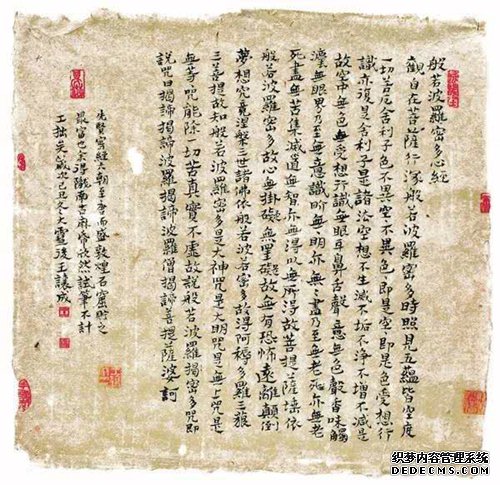 般若波羅密多心經
觀自在菩薩行深般若波羅密多時照見五蘊皆空度
一切苦厄舍利子色不異空不異色、即是空、即是色受想行
識亦復是舍利子是諸法空想不生滅不垢不淨不增不減是
故空中無色無受想行識無眼耳鼻舌聲意無色聲香味觸
灋無眼界乃至無意識所無、明亦無、盡乃至無老死亦無老
死盡無苦集滅道無智亦無得以無所得故菩提薩埵依
般若波羅密多故心無掛礙無罣礙故無有恐怖遠離顛倒
夢想究竟涅槃三世諸佛依般若波若密多故得阿耨多羅三藐
三菩提故知般若波羅密多是大神咒是大明咒是無上咒是
無等咒能除一切苦真實不虛故說般若波羅揭密多咒即
說咒曰揭諦揭諦波羅揭諦波羅僧揭諦菩提薩婆訶
先賢寫經朝至唐而盛敦煌石窟貯之
最富也余得隴南古麻帋欣然試筆不計
工拙矣歲次己丑冬大雪後王譲成
织梦内容管理系统
DEDECMS.COM